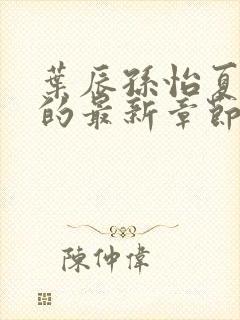 葉辰孫怡夏
的最新章節
陳仲偉